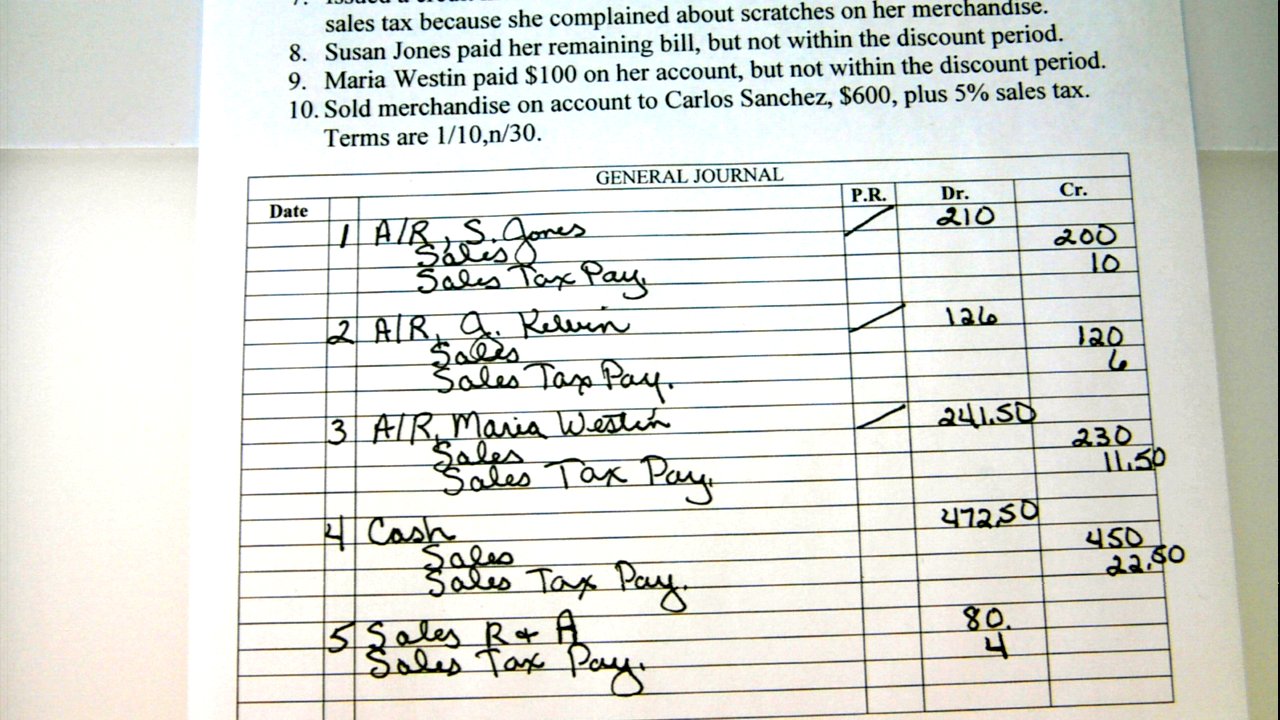 sales tax because she complained about scratches on her merchandise.
8. Susan Jones paid her remaining bill, but not within the discount period.
9. Maria Westin paid $100 on her account, but not within the discount period.
10. Sold merchandise on account to Carlos Sanchez, $600, plus 5% sales tax.
Terms are 1/10,n/30.
GENERAL JOURNAL
Date P.R. Dr. Cr.
1 A/R, S. Jones 210
Sales 200
Sales Tax Pay. 10
2 A/R, J. Kelvin 126
Sales 120
Sales Tax Pay. 6
3 A/R, Maria Westin 241.50
Sales 230
Sales Tax Pay. 11.50
4 Cash 472.50
Sales 450
Sales Tax Pay. 22.50
5 Sales R + A 80.
Sales Tax Pay. 4